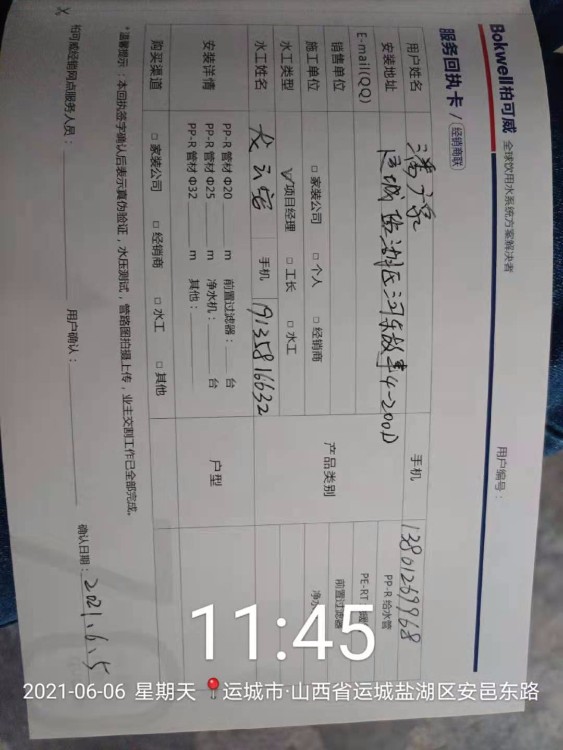 Bokwell柏可威 全球饮用水系统方案解决者
用户编号：
服务回执卡 / 经销商联
用户姓名 手机 13801269968
安装地址 运城盐湖区河东故事4-200D
E-mail(QQ) 产品类别 PP-R 给水管
销售单位 PE-RT
前置过滤器
施工单位 □ 家装公司 □ 个人 □ 经销商 净水
水工类型 项目经理 □ 工长 □ 水工
水工姓名 手机 19135816632
安装详情 PP-R 管材 Φ20 m 前置过滤器： 台 户型
PP-R 管材 Φ25 m 净水机： 台
PP-R 管材 Φ32 m 其他：
购买渠道 □ 家装公司 □ 经销商 □ 水工 □ 其他
*温馨提示：本回执签字确认后表示真伪验证，水压测试，管路图拍摄上传，业主交割工作已全部完成。
柏可威经销网点服务人员： 用户确认： 确认日期：2021.6.5
11:45
2021-06-06 星期天 运城市·山西省运城盐湖区安邑东路